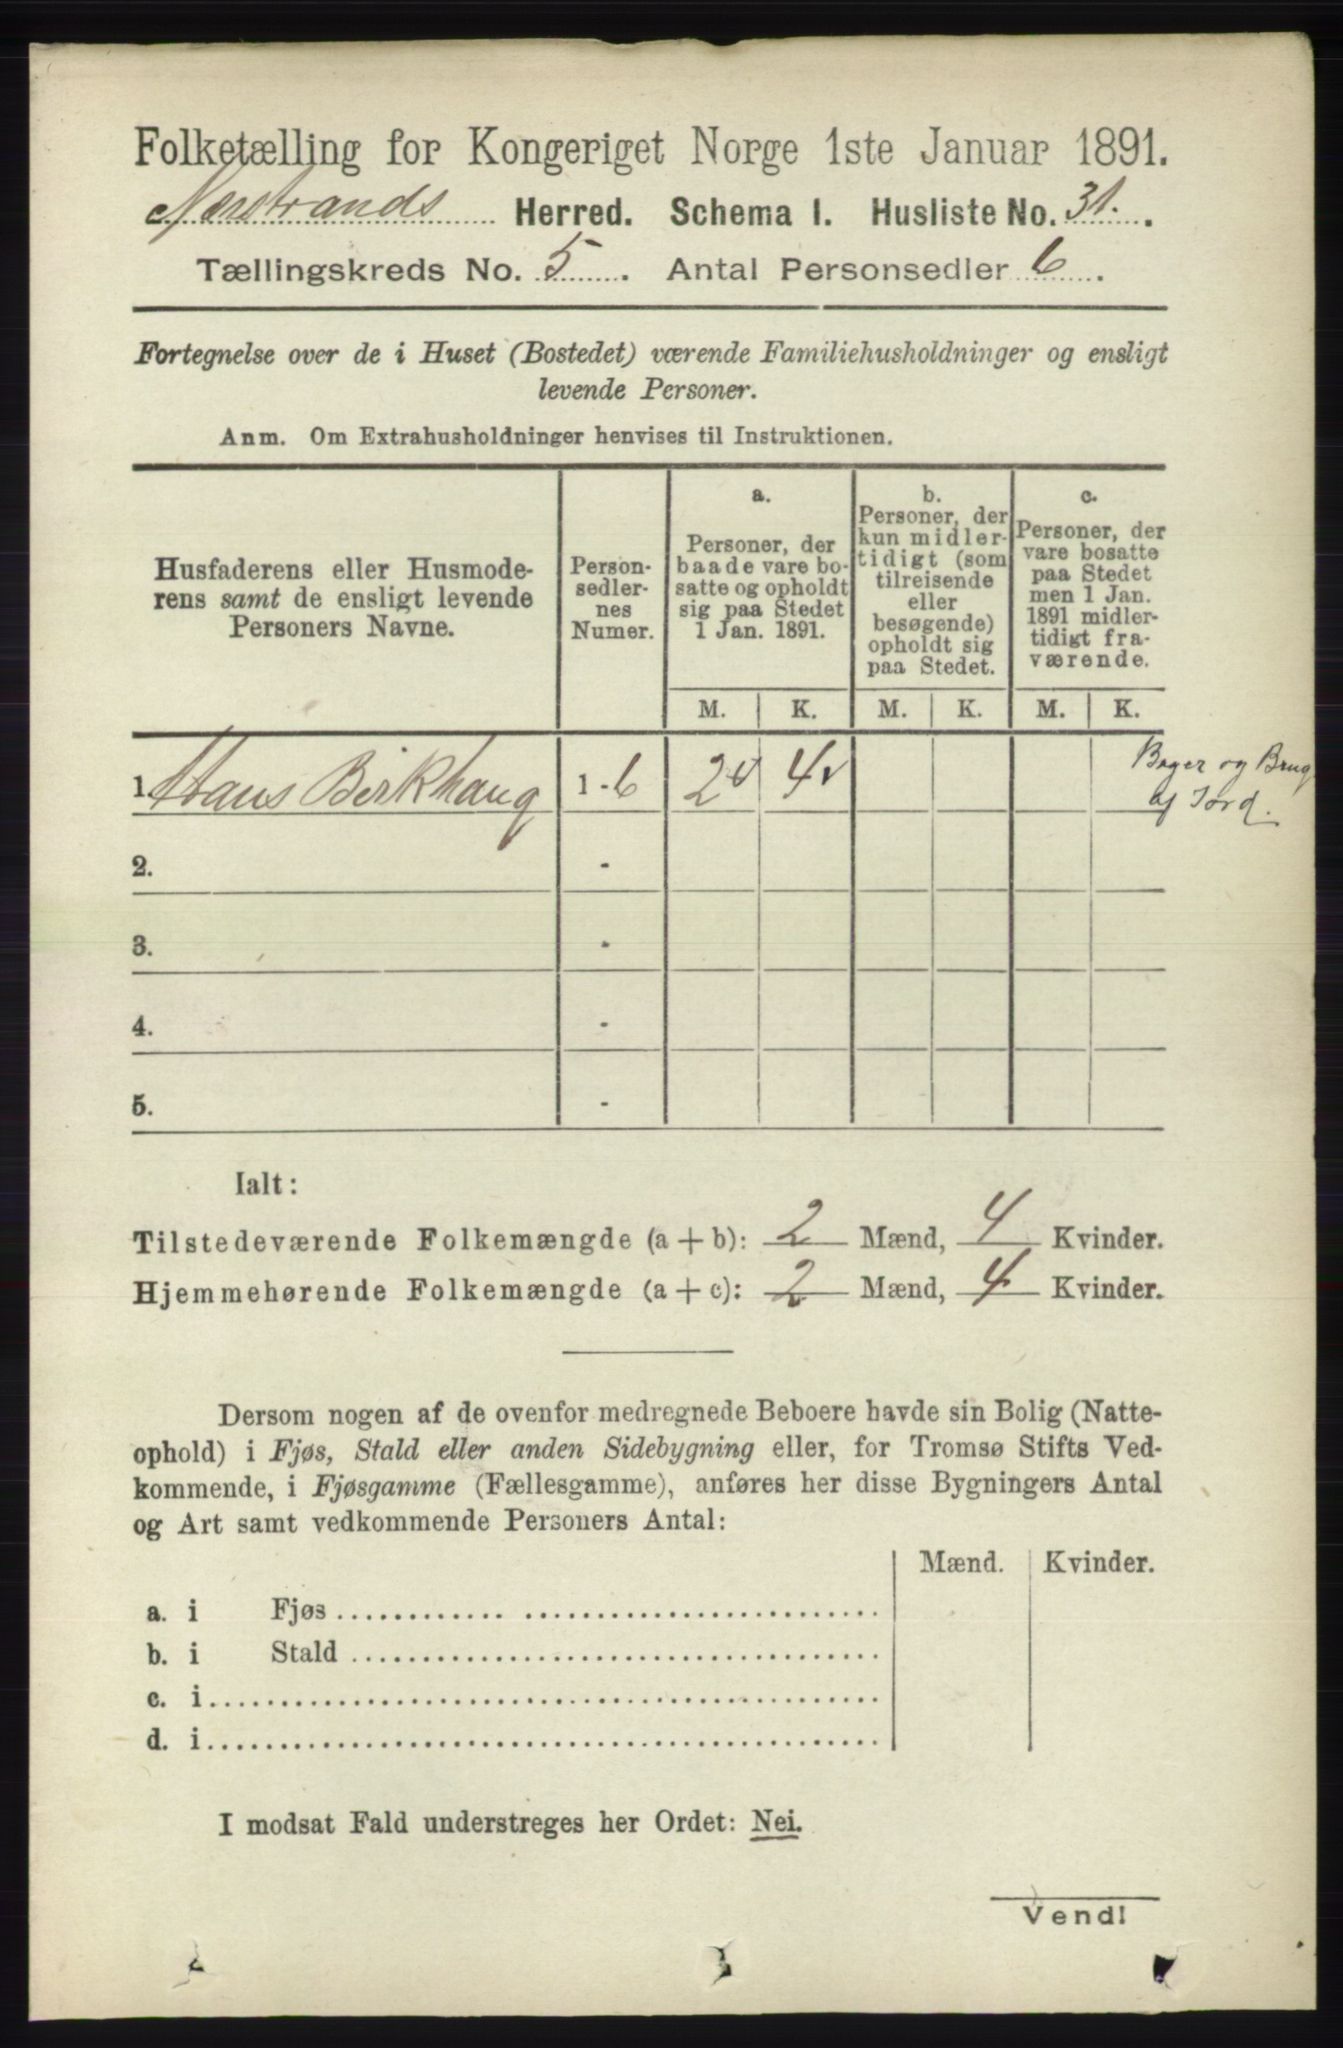 Folketælling for Kongeriget Norge 1ste Januar 1891.
Nærstrands Herred. Schema I. Husliste No. 31.
Tællingskreds No. 5. Antal Personsedler 6.
Fortegnelse over de i Huset (Bostedet) værende Familiehusholdninger og ensligt
levende Personer.
Anm. Om Extrahusholdninger henvises til Instruktionen.
Husfaderens eller Husmode-
rens samt de ensligt levende
Personers Navne.
Person-
sedler-
nes
Numer.
a.
Personer, der
baade vare bo-
satte og opholdt
sig paa Stedet
1 Jan. 1891.
b.
Personer, der
kun midler-
tidigt (som
tilreisende
eller
besøgende)
opholdt sig
paa Stedet.
c.
Personer, der
vare bosatte
paa Stedet
men 1 Jan.
1891 midler-
tidigt fra-
værende.
M. K. M. K. M. K.
1. Hans Birkhaug 1 - 6 2 4
Bager og Brug
af Jord.
2. -
3. -
4. -
5. -
Ialt:
Tilstedeværende Folkemængde (a + b): 2 Mænd, 4 Kvinder.
Hjemmehørende Folkemængde (a + c): 2 Mænd, 4 Kvinder.
Dersom nogen af de ovenfor medregnede Beboere havde sin Bolig (Natte-
ophold) i Fjøs, Stald eller anden Sidebygning eller, for Tromsø Stifts Ved-
kommende, i Fjøsgamme (Fællesgamme), anføres her disse Bygningers Antal
og Art samt vedkommende Personers Antal:
Mænd. Kvinder.
a. i Fjøs
b. i Stald
c. i
d. i
I modsat Fald understreges her Ordet: Nei.
Vend!